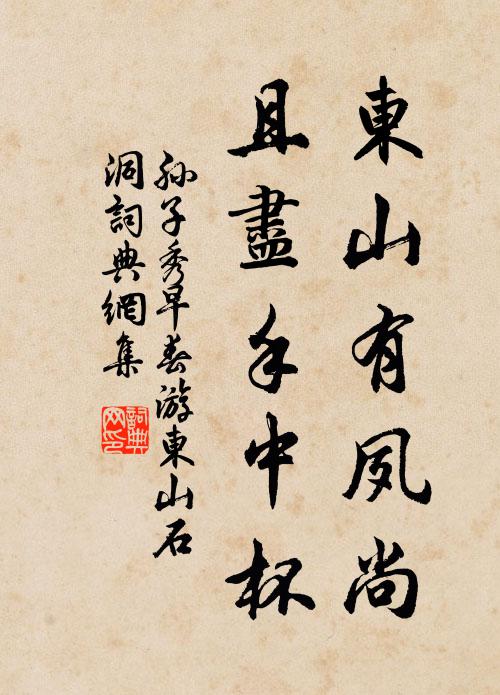 東山有夙尚
且盡手中杯
孙子秀早春游東山石
洞詞典網集
詞典
网印